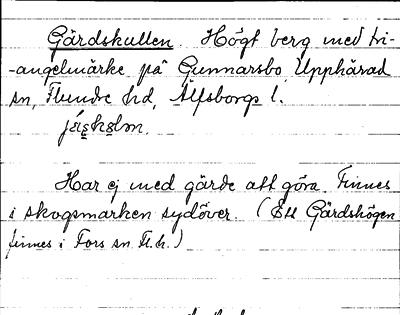 Gärdskullen. Högt berg med tri-
-angelmärke på Gunnarsbo, Upphärad
sn, Flundre hd, Älfsborgs l.
Har ej med gärde att göra. Finnes
i skogsmarken sydöver. (Ett Gärdshögen
finnes i Fors sn Fl.h.)